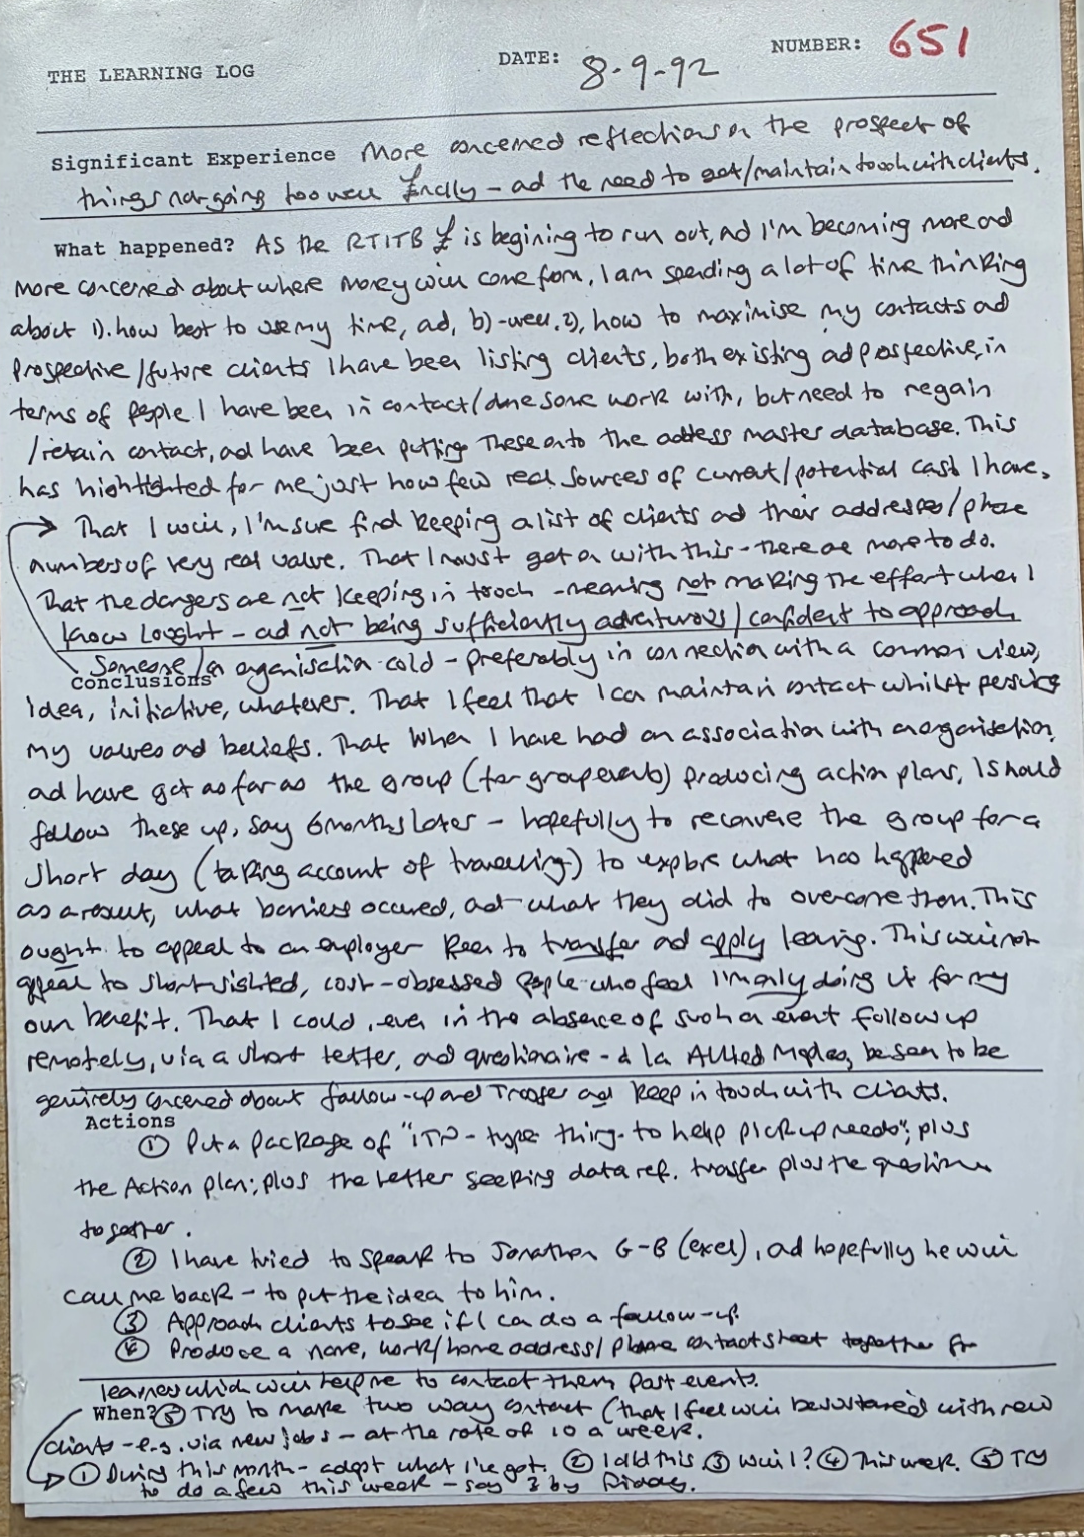 THE LEARNING LOG
DATE: 8-9-92
NUMBER: 651
Significant Experience More concerned reflections on the prospect of
things not going too well £nclly - ad the need to get/maintain touch with clients.
What happened? AS the RTITB £ is begining to run out, ad I'm becoming more ad
more concerned about where money will come from, I am spending a lot of time thinking
about 1). how best to use my time, ad, b) - well, 2), how to maximise my contacts ad
prospective/future clients I have been listing clients, both existing ad prospective, in
terms of people I have been in contact/done some work with, but need to regain
/retain contact, ad have been putting these onto the address master database. This
has highlighted for me just how few real sources of current/potential cash I have.
That I will, I'm sure find keeping a list of clients ad their addresses/phone
numbers of very real value. That I must get on with this - there are more to do.
That the dangers are not keeping in touch - meaning not making the effort when I
know I ought - ad not being sufficiently adventurous/confident to approach
Someone/an organisation cold - preferably in connection with a common view,
Conclusions
idea, initiative, whatever. That I feel that I can maintain contact whilst persuing
my values ad beliefs. That when I have had an association with an organisation,
ad have got as far as the group (for group events) producing action plans, I should
follow these up, say 6 months later - hopefully to reconvene the group for a
short day (taking account of travelling) to explore what has happened
as a result, what barriers occured, ad what they did to overcome them. This
ought to appeal to an employer keen to transfer ad apply learning. This will not
appeal to short-sighted, cost-obsessed people who feel I'm only doing it for my
own benefit. That I could, even in the absence of such an event follow up
remotely, via a short letter, ad questionaire - à la Allied Maples, be seen to be
genuinely concerned about follow-up and Transfer and keep in touch with clients.
Actions
① Put a package of "ITN - type thing to help pick up needs"; plus
the Action plan; plus the letter seeking data ref. transfer plus the questionn
together.
② I have tried to speak to Jonathan G-B (excel), ad hopefully he will
call me back - to put the idea to him.
③ Approach clients to see if I can do a follow-up.
④ Produce a name, work/home address/phone contact sheet together for
learners which will help me to contact them past events.
When? ⑤ Try to make two way contact (that I feel will be sustained) with new
clients - e.g. via new jobs - at the rate of 10 a week.
① During this month - adapt what I've got. ② I did this ③ will? ④ This week. ⑤ Try
to do a few this week - say 2 by Friday.